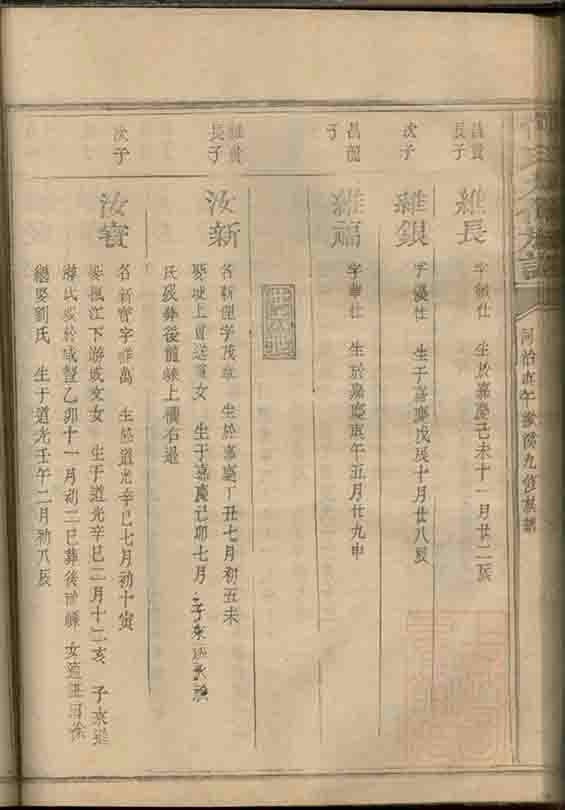 同治庚午敦倫九修族譜
昌貴長子
維長
字敏仕 生於嘉慶己未十一月廿二辰
次子
維銀
字優仕 生于嘉慶戊辰十月廿八辰
昌龍子
維福
字華仕 生於嘉慶庚午五月廿九申
維貴長子
汝新
名新 字茂 生於嘉慶丁丑七月初五未
娶坡上 女 生于嘉慶己卯七月 子
氏歿葬後龍嶺上橫右邊
次子
汝寶
名新寶字 萬 生於道光辛巳七月初十寅
娶楓江下游成交女 生于道光辛巳二月十二亥 子
氏歿於咸豐乙卯十一月初二巳葬後 嶺 女適
繼娶劉氏 生于道光壬午二月初八辰